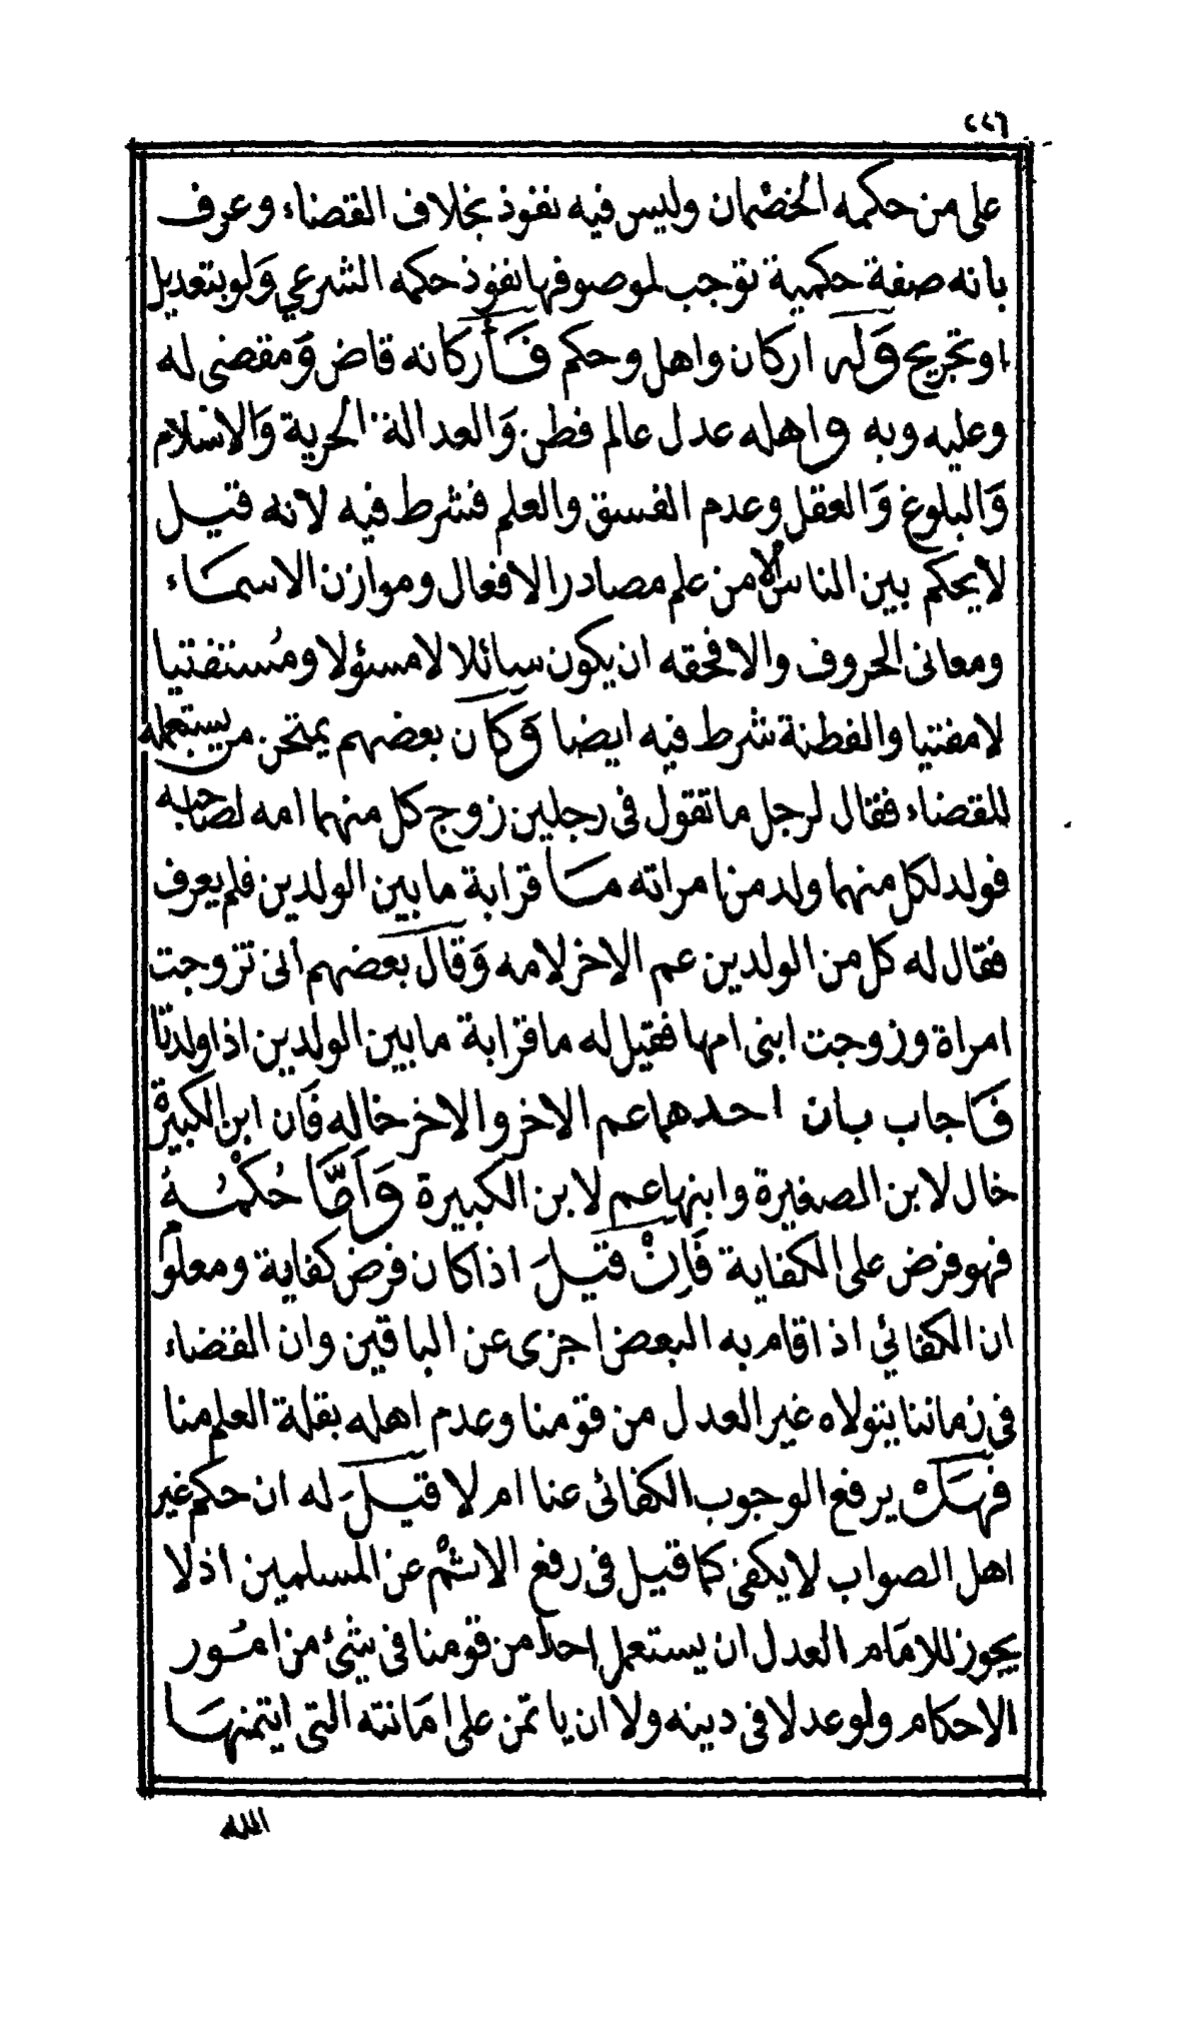 ٢٢٦
على من حكمه الخصمان وليس فيه نفوذ بخلاف القضاء وعرف
بانه صفة حكمية توجب لموصوفها نفوذ حكمه الشرعي وَلو بتعديل
او تجريح وَله اركان واهل وحكم فَأركانه قاض وَمقضى له
وعليه وبه واهله عدل عالم فطن وَالعدالة الحرية وَالاسلام
وَالبلوغ وَالعقل وعدم الفسق والعلم فشرط فيه لانه قيل
لا يحكم بين الناس الا من علم مصادر الافعال وموازن الاسماء
ومعانى الحروف والا فحقه ان يكون سائلا لا مسئولا ومُستفتيا
لا مفتيا والفطنة شرط فيه ايضا وَكان بعضهم يمتحن من يستعمله
للقضاء فقال لرجل ما تقول فى رجلين زوج كل منهما امه لصاحبه
فولد لكل منهما ولد من امراته ما قرابة ما بين الولدين فلم يعرف
فقال له كل من الولدين عم الاخر لامه وَقال بعضهم انى تزوجت
امراة وزوجت ابنى امها فقيل له ما قرابة ما بين الولدين اذا ولدتا
فاجاب بان احدهما عم الاخر والاخر خاله فَان ابن الكبيرة
خال لابن الصغيرة وابنها عم لابن الكبيرة وَاَمَّا حُكْمُهُ
فهو فرض على الكفاية فَاِنْ قيلَ اذا كان فرض كفاية ومعلوم
ان الكفائي اذا قام به البعض اجزى عن الباقين وان القضاء
فى زماننا يتولاه غير العدل من قومنا وعدم اهله بقلة العلم منا
فهَل يرفع الوجوب الكفائى عنا ام لا قيلَ له ان حكم غير
اهل الصواب لا يكفى كما قيل فى رفع الاثم عن المسلمين اذ لا
يجوز للامَام العدل ان يستعمل احدا من قومنا فى شئ من امُور
الاحكام ولو عدلا فى دينه ولا ان ياتمن على امَانته التى ايتمنهَا
الله